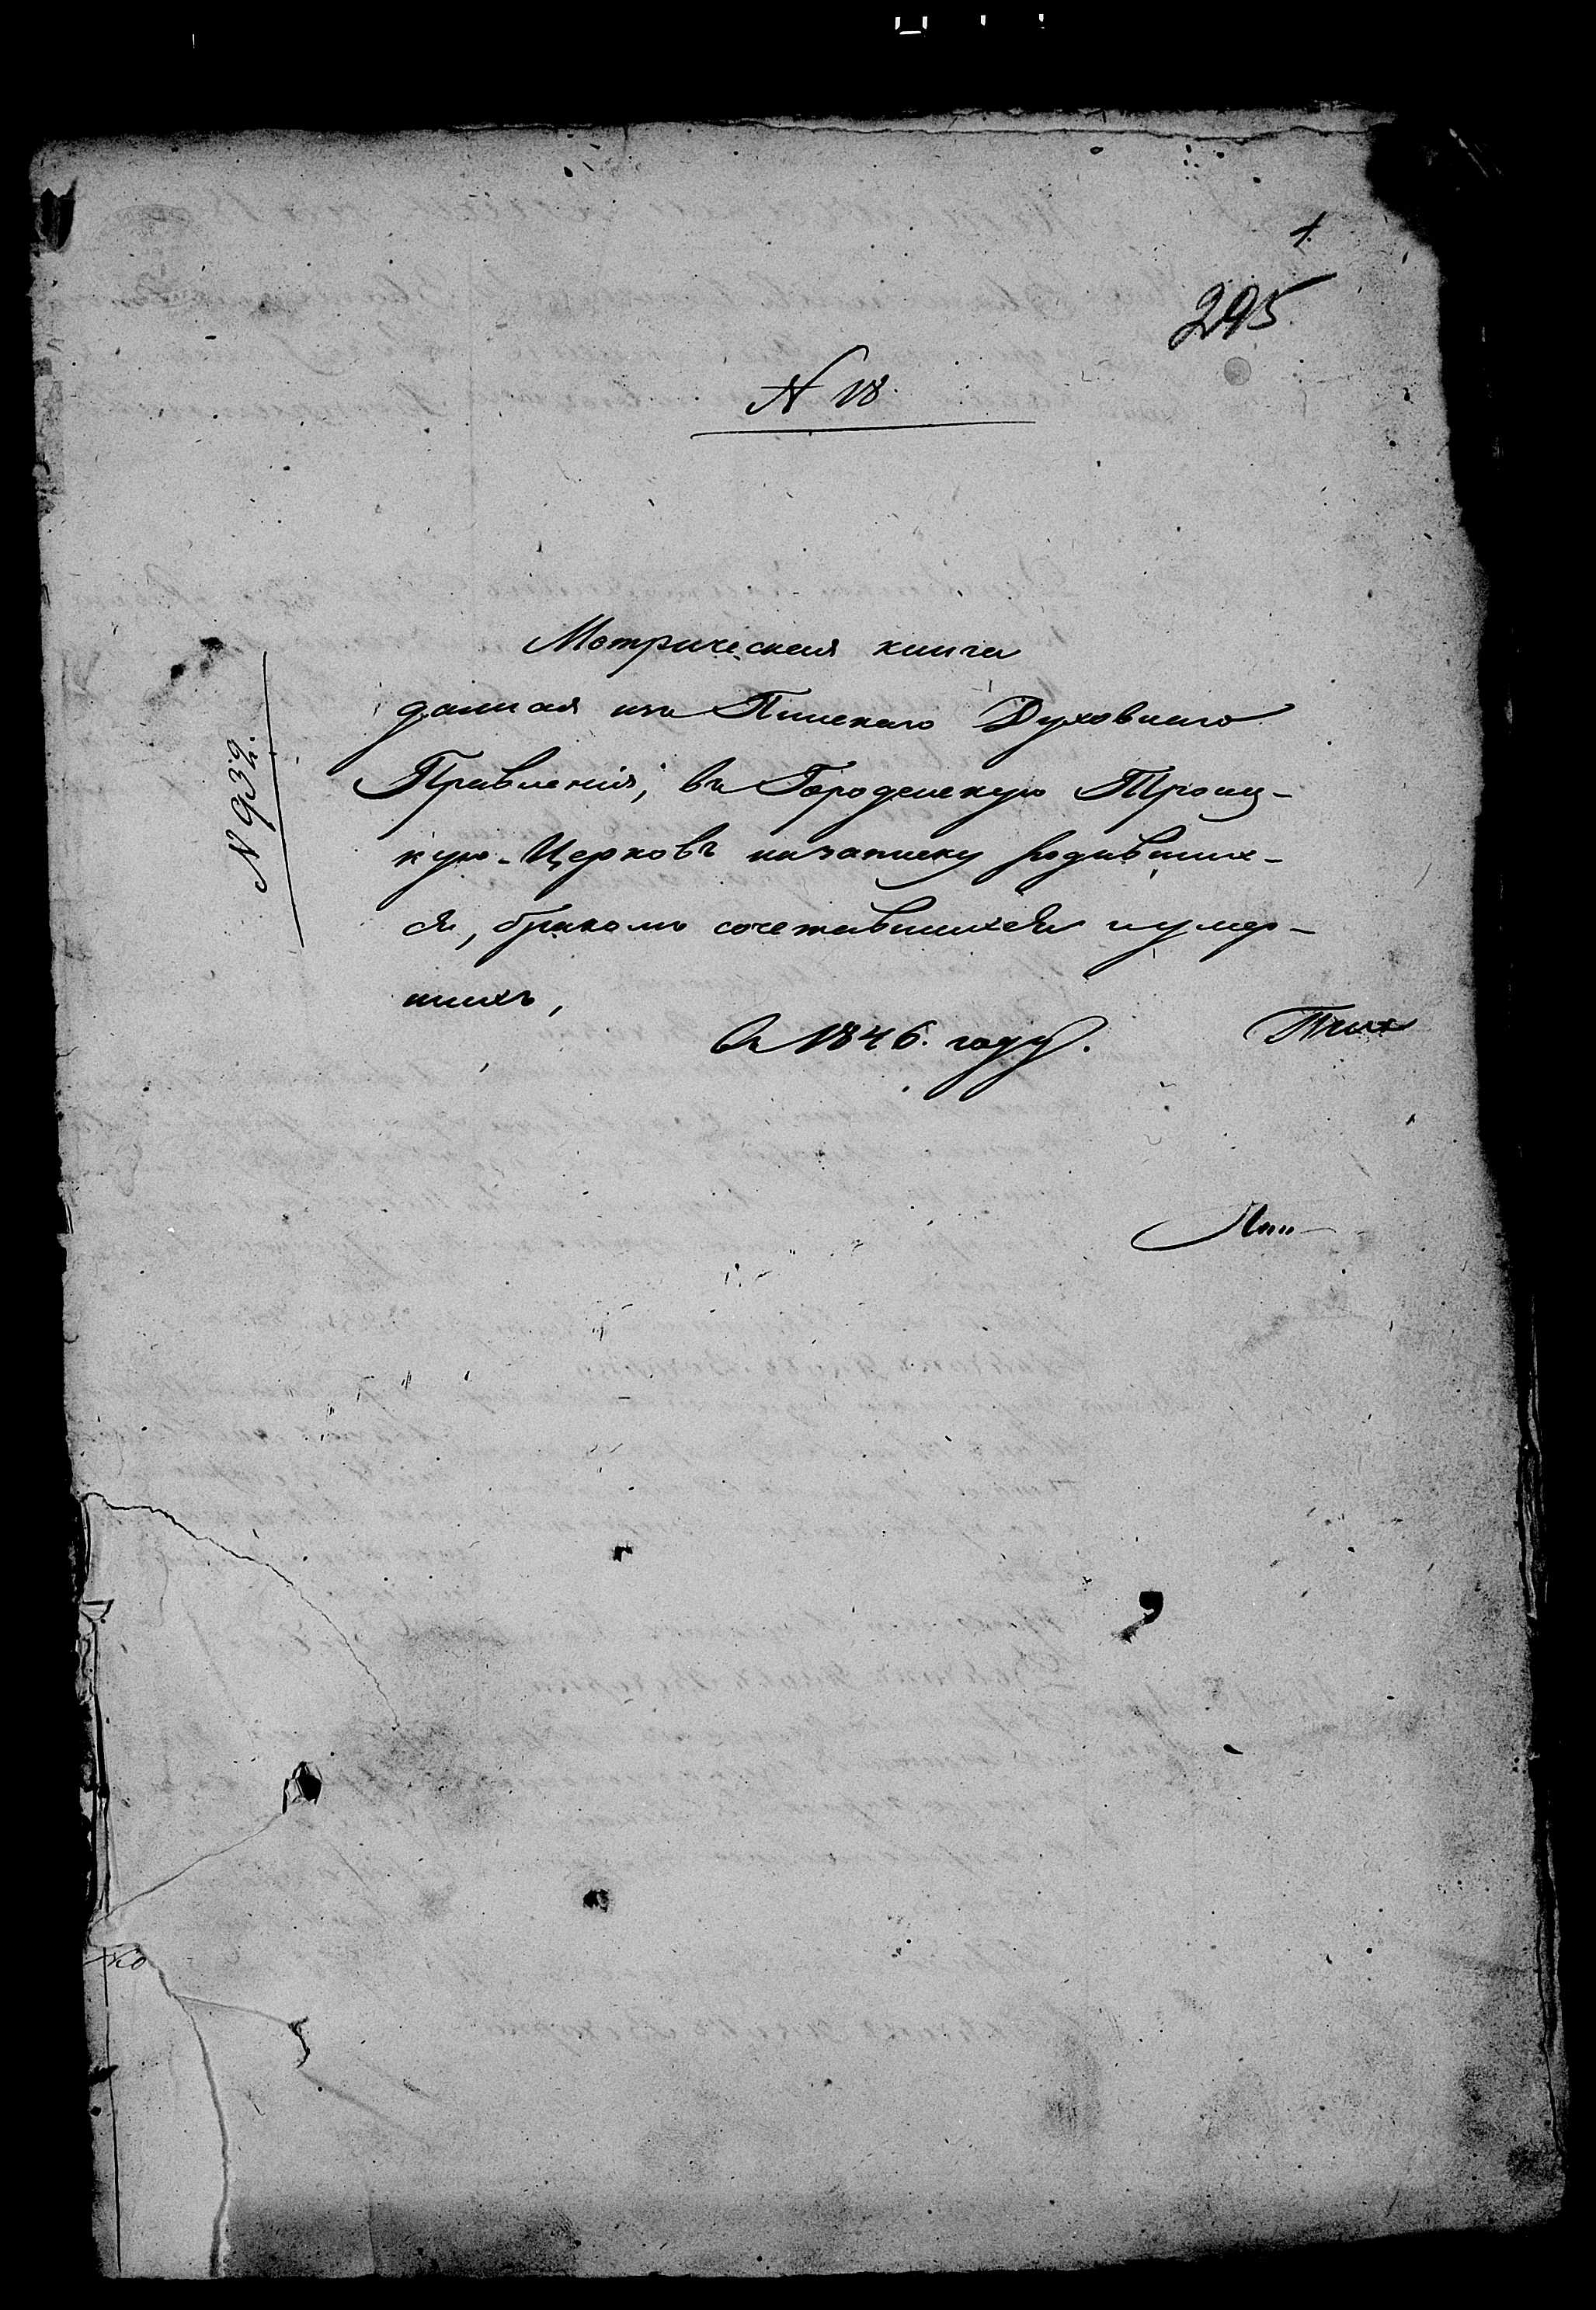 1.
295
N 18.
Метрическая книга
данная изъ Пинскаго Духовнаго
Правленія, въ Городенскую Троиц-
кую-Церковъ назаписку родивших-
ся, бракомъ сочетавшихся иумер-
шихъ,
въ 1846. году.
N 932.